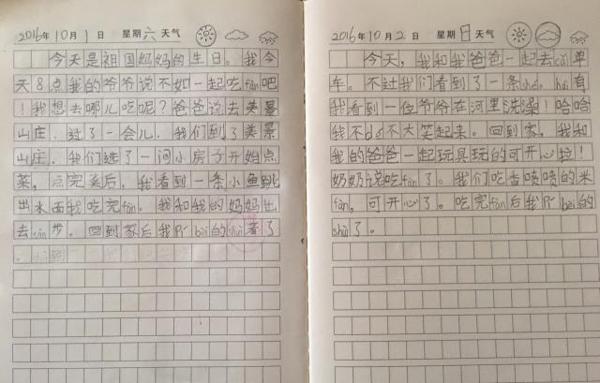 2016年10月1日 星期六 天气
今天是祖国妈妈的生日。我今
天8点我的爷爷说不如一起吃fàn吧
！我想去哪儿吃呢？爸爸说去美景
山庄，过了一会儿，我们到了美景
山庄。我们选了一间小房子开始点
菜，点完菜后，我看到一条小鱼跳
出水面我吃完fàn。我和我的妈妈出
去sàn步。回到家后我
2016年10月2日 星期日 天气
今天，我和我爸爸一起去qí单
车。不过我们看到了一条
我看到一位爷爷在河里洗澡！哈哈
我不dé不大笑起来。回到家，我和
我的爸爸一起玩具玩的可开心啦！
奶奶说吃fàn了。我们吃香喷喷的米
fàn，可开心了。吃完fàn后我
了。